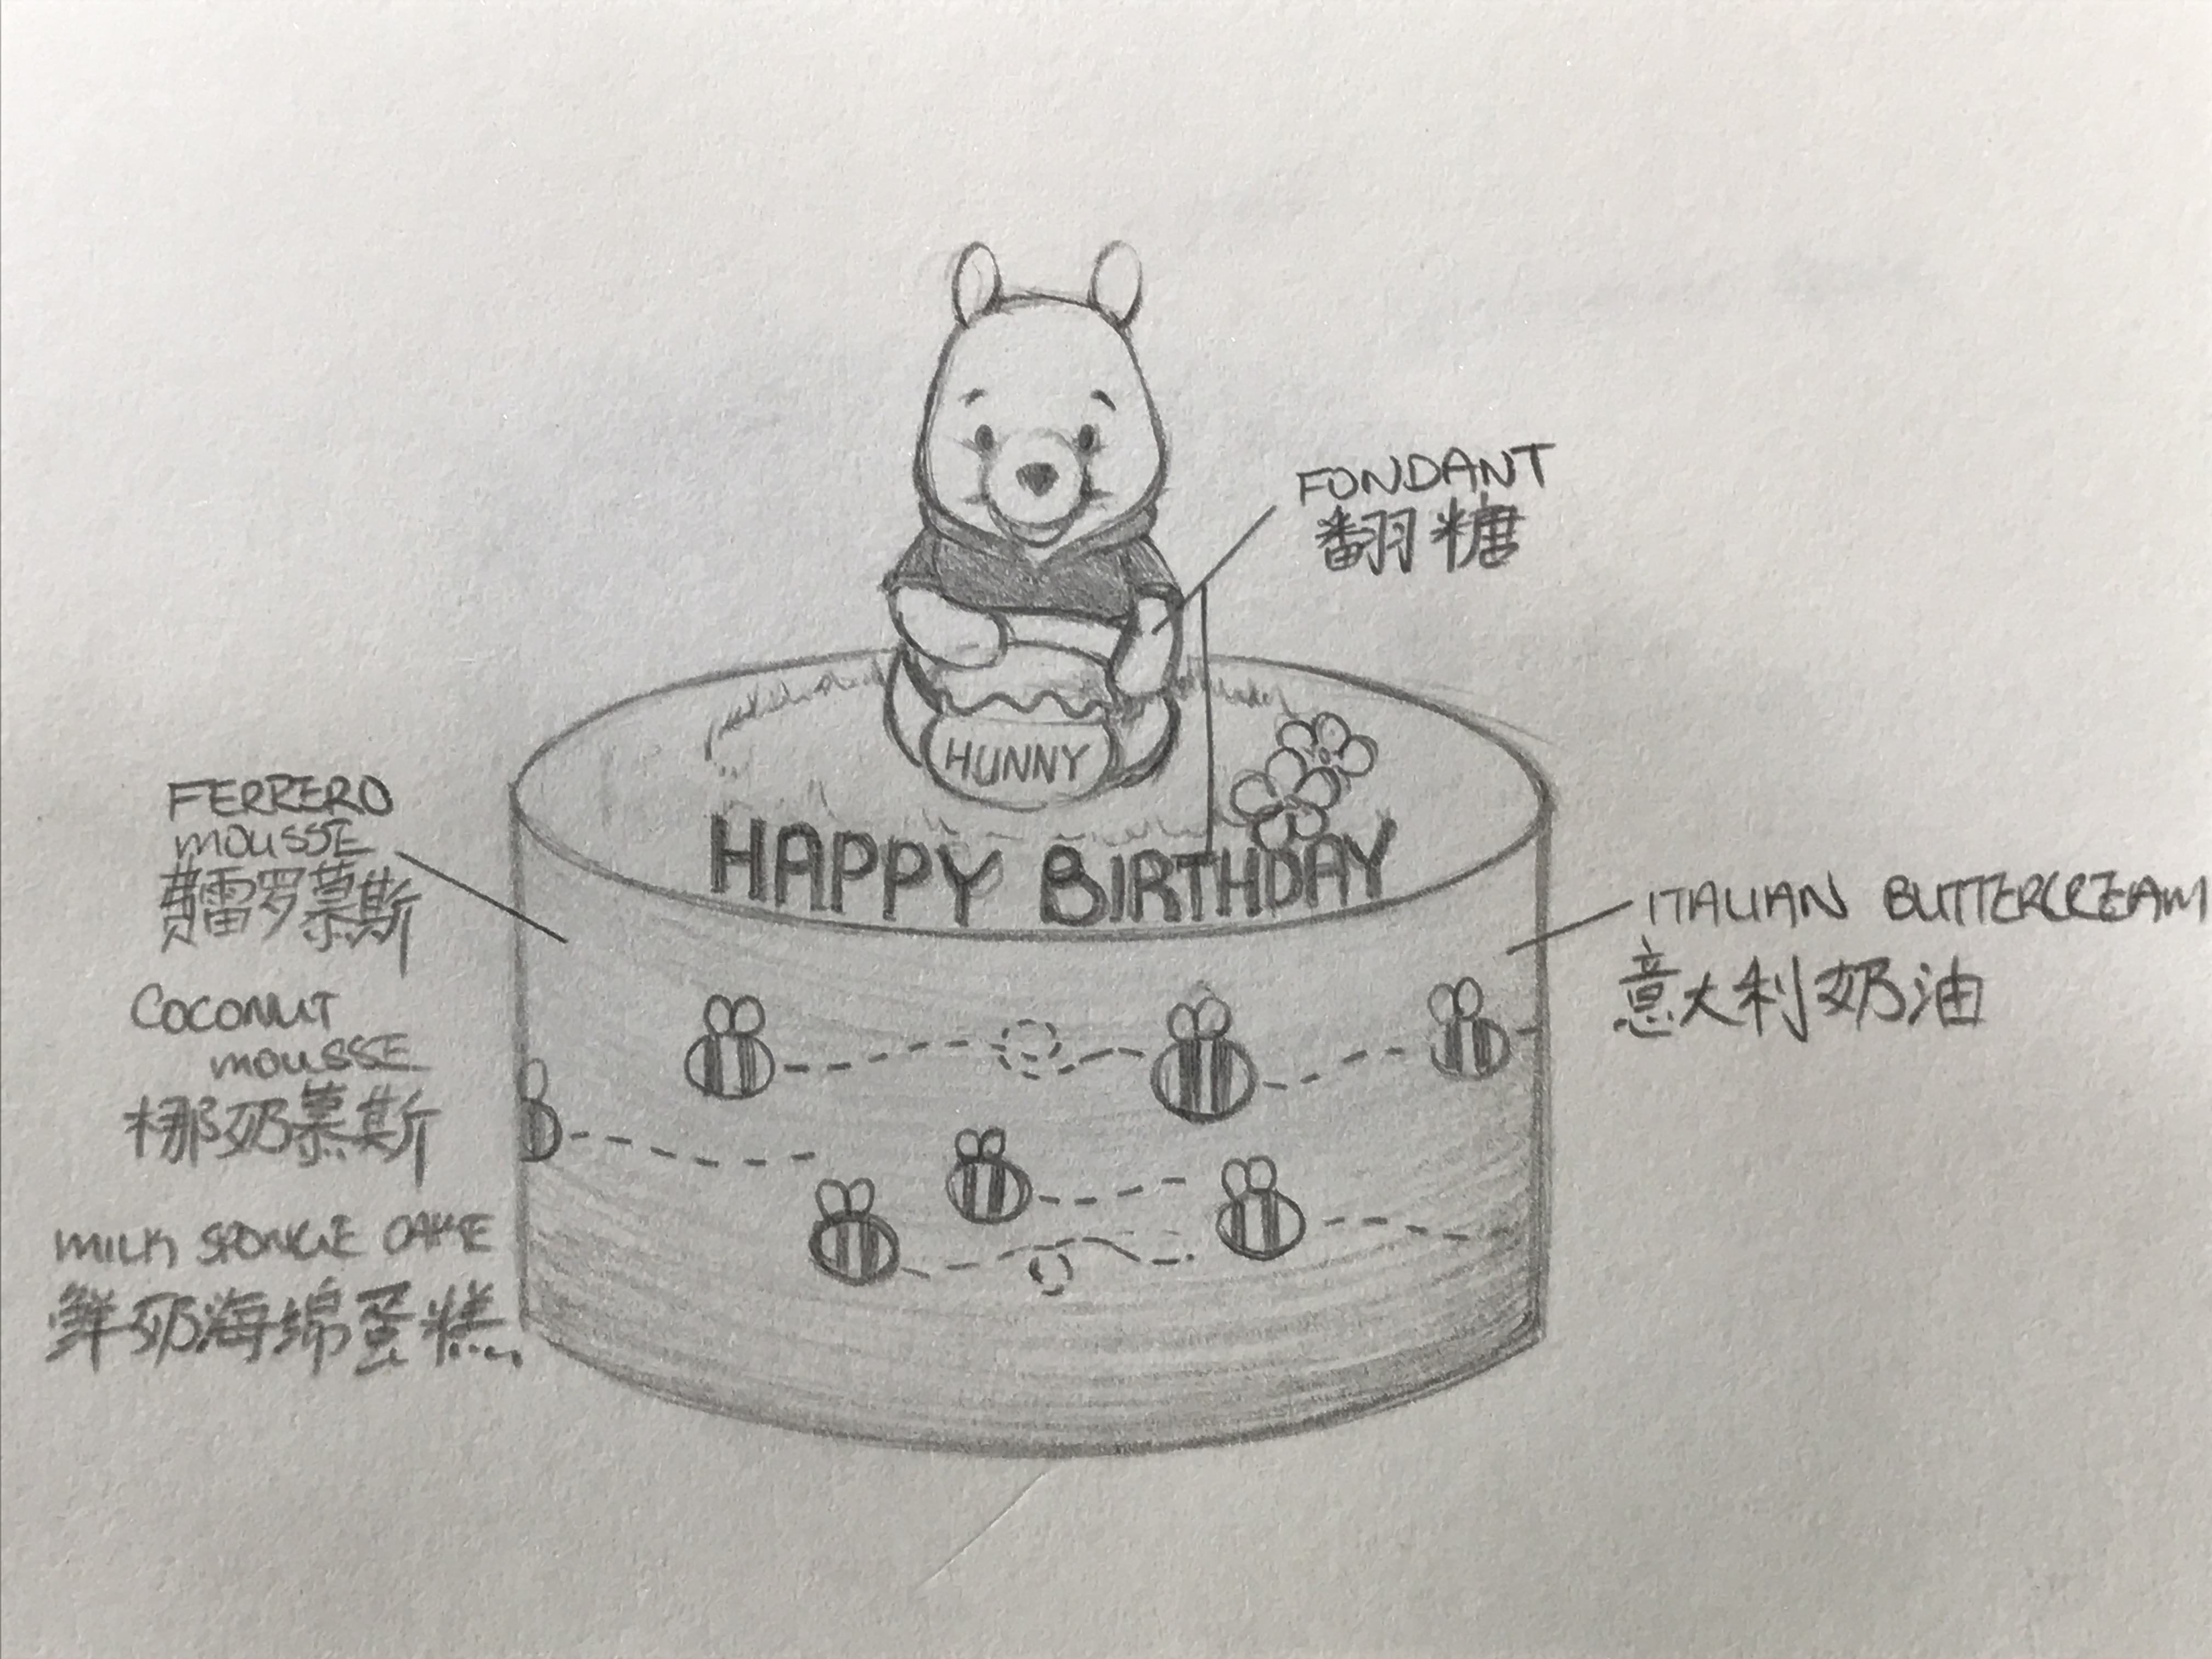 FONDANT
翻糖
HUNNY
HAPPY BIRTHDAY
FERRERO
MOUSSE
费雷罗慕斯
COCONUT
MOUSSE
椰奶慕斯
MILK SPONGE CAKE
鲜奶海绵蛋糕
ITALIAN BUTTERCREAM
意大利奶油